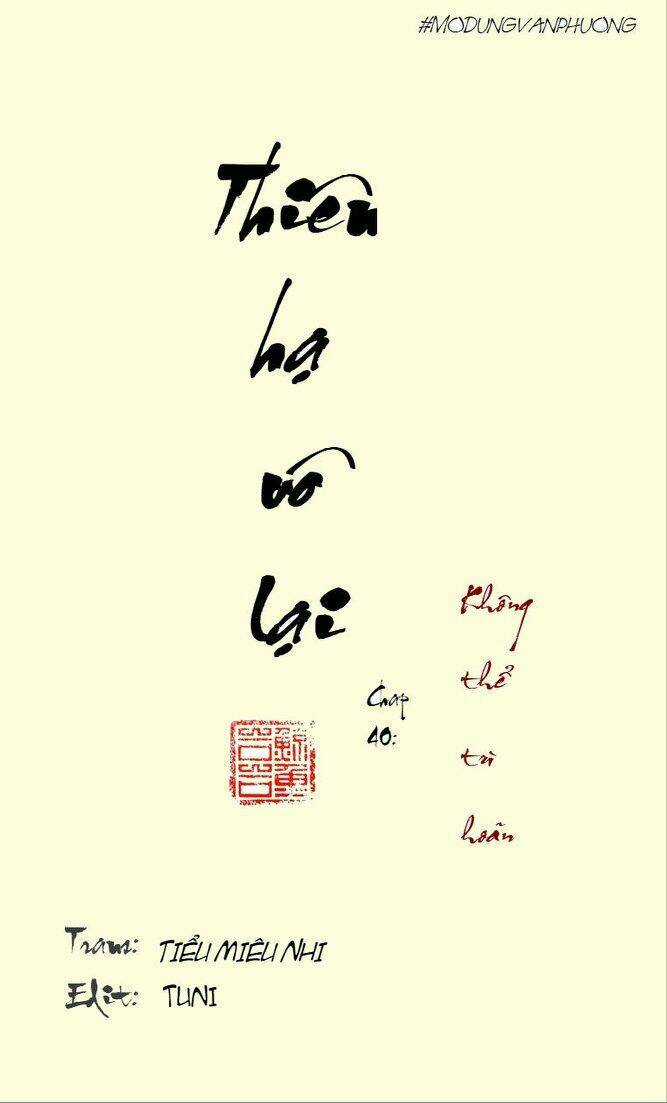 #MODUNGVANPHUONG
Thiên
hạ
vô
lại
Chap
40:
Không
thể
trì
hoãn
Trans: TIỂU MIÊU NHI
Edit: TUNI